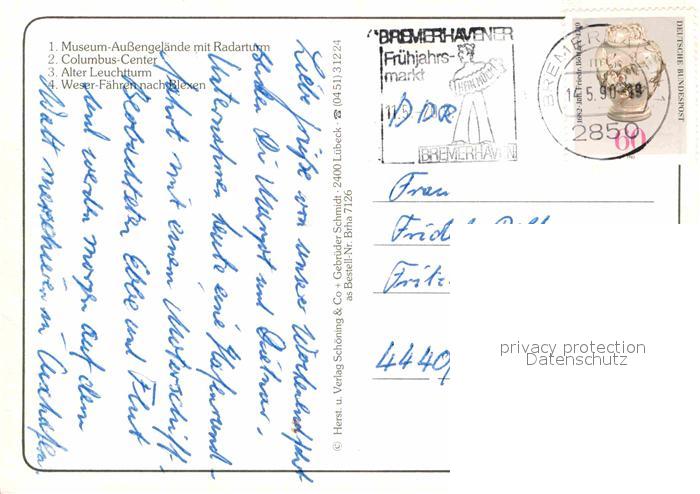 1. Museum-Außengelände mit Radarturm
2. Columbus-Center
3. Alter Leuchtturm
4. Weser-Fähren nach Blexen
Liebe Grüße von unser Wochenendfahrt
senden Dir Margot und
Unternehmen heute eine Hafenrund-
fahrt mit einem Motorschiff.
Beobachteten Ebbe und Flut
und werden morgen auf dem
Watt marschieren in Cuxhafen.
© Herst. u. Verlag Schöning & Co + Gebrüder Schmidt · 2400 Lübeck · ☎ (04 51) 3 12 24
as Bestell-Nr. Brha 7126
BREMERHAVENER
Frühjahrs-
markt
BREMERHAVEN
DDR
BREMERHAVEN 1
.5.90
2850
DEUTSCHE BUNDESPOST
60
Frau
Fried
Fritz
4440,
privacy protection
Datenschutz